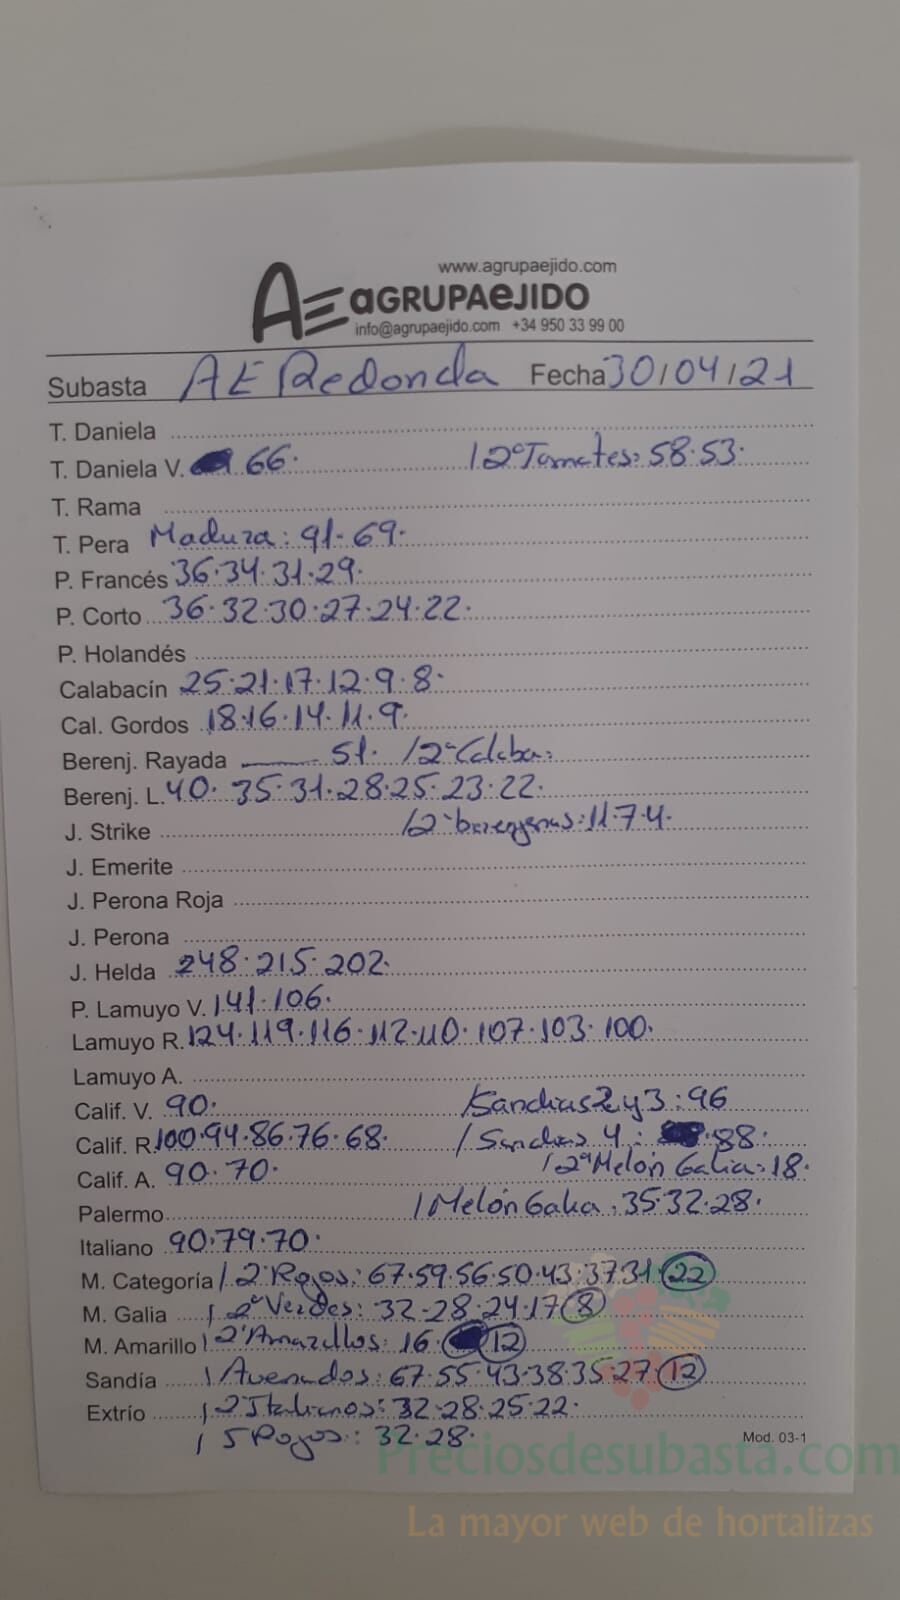 www.agrupaejido.com
AE aGRUPAeJIDO
info@agrupaejido.com +34 950 33 99 00
Subasta AE Redonda Fecha 30/04/21
T. Daniela
T. Daniela V. 66. / 2ª Tomates: 58.53.
T. Rama
T. Pera Madura: 91-69.
P. Francés 36.34.31.29.
P. Corto 36.32.30.27.24.22.
P. Holandés
Calabacín 25.21.17.12.9.8.
Cal. Gordos 18.16.14.11.9.
Berenj. Rayada 51. / 2ª Calaba:
Berenj. L. 40. 35.31.28.25.23.22.
J. Strike / 2ª berengenas: 11.7.4.
J. Emerite
J. Perona Roja
J. Perona
J. Helda 248.215.202.
P. Lamuyo V. 141.106.
Lamuyo R. 124.119.116.112.110.107.103.100.
Lamuyo A.
Calif. V. 90. / Sandias 2 y 3: 96
Calif. R. 100.94.86.76.68. / Sandias 4: 88.
Calif. A. 90.70. / 2ª Melón Galia: 18.
Palermo / Melón Galia: 35.32.28.
Italiano 90.79.70.
M. Categoría / 2ª Rojos: 67.59.56.50.43.37.31.22
M. Galia / 2ª Verdes: 32-28.24.17.8
M. Amarillo / 2ª Amarillos: 16. 12
Sandía / Avenados: 67.55.43.38.35.27.12
Extrío / 2 Italianos: 32.28.25.22.
/ 5 Rojos: 32.28.
Mod. 03-1
Preciosdesubasta.com
La mayor web de hortalizas